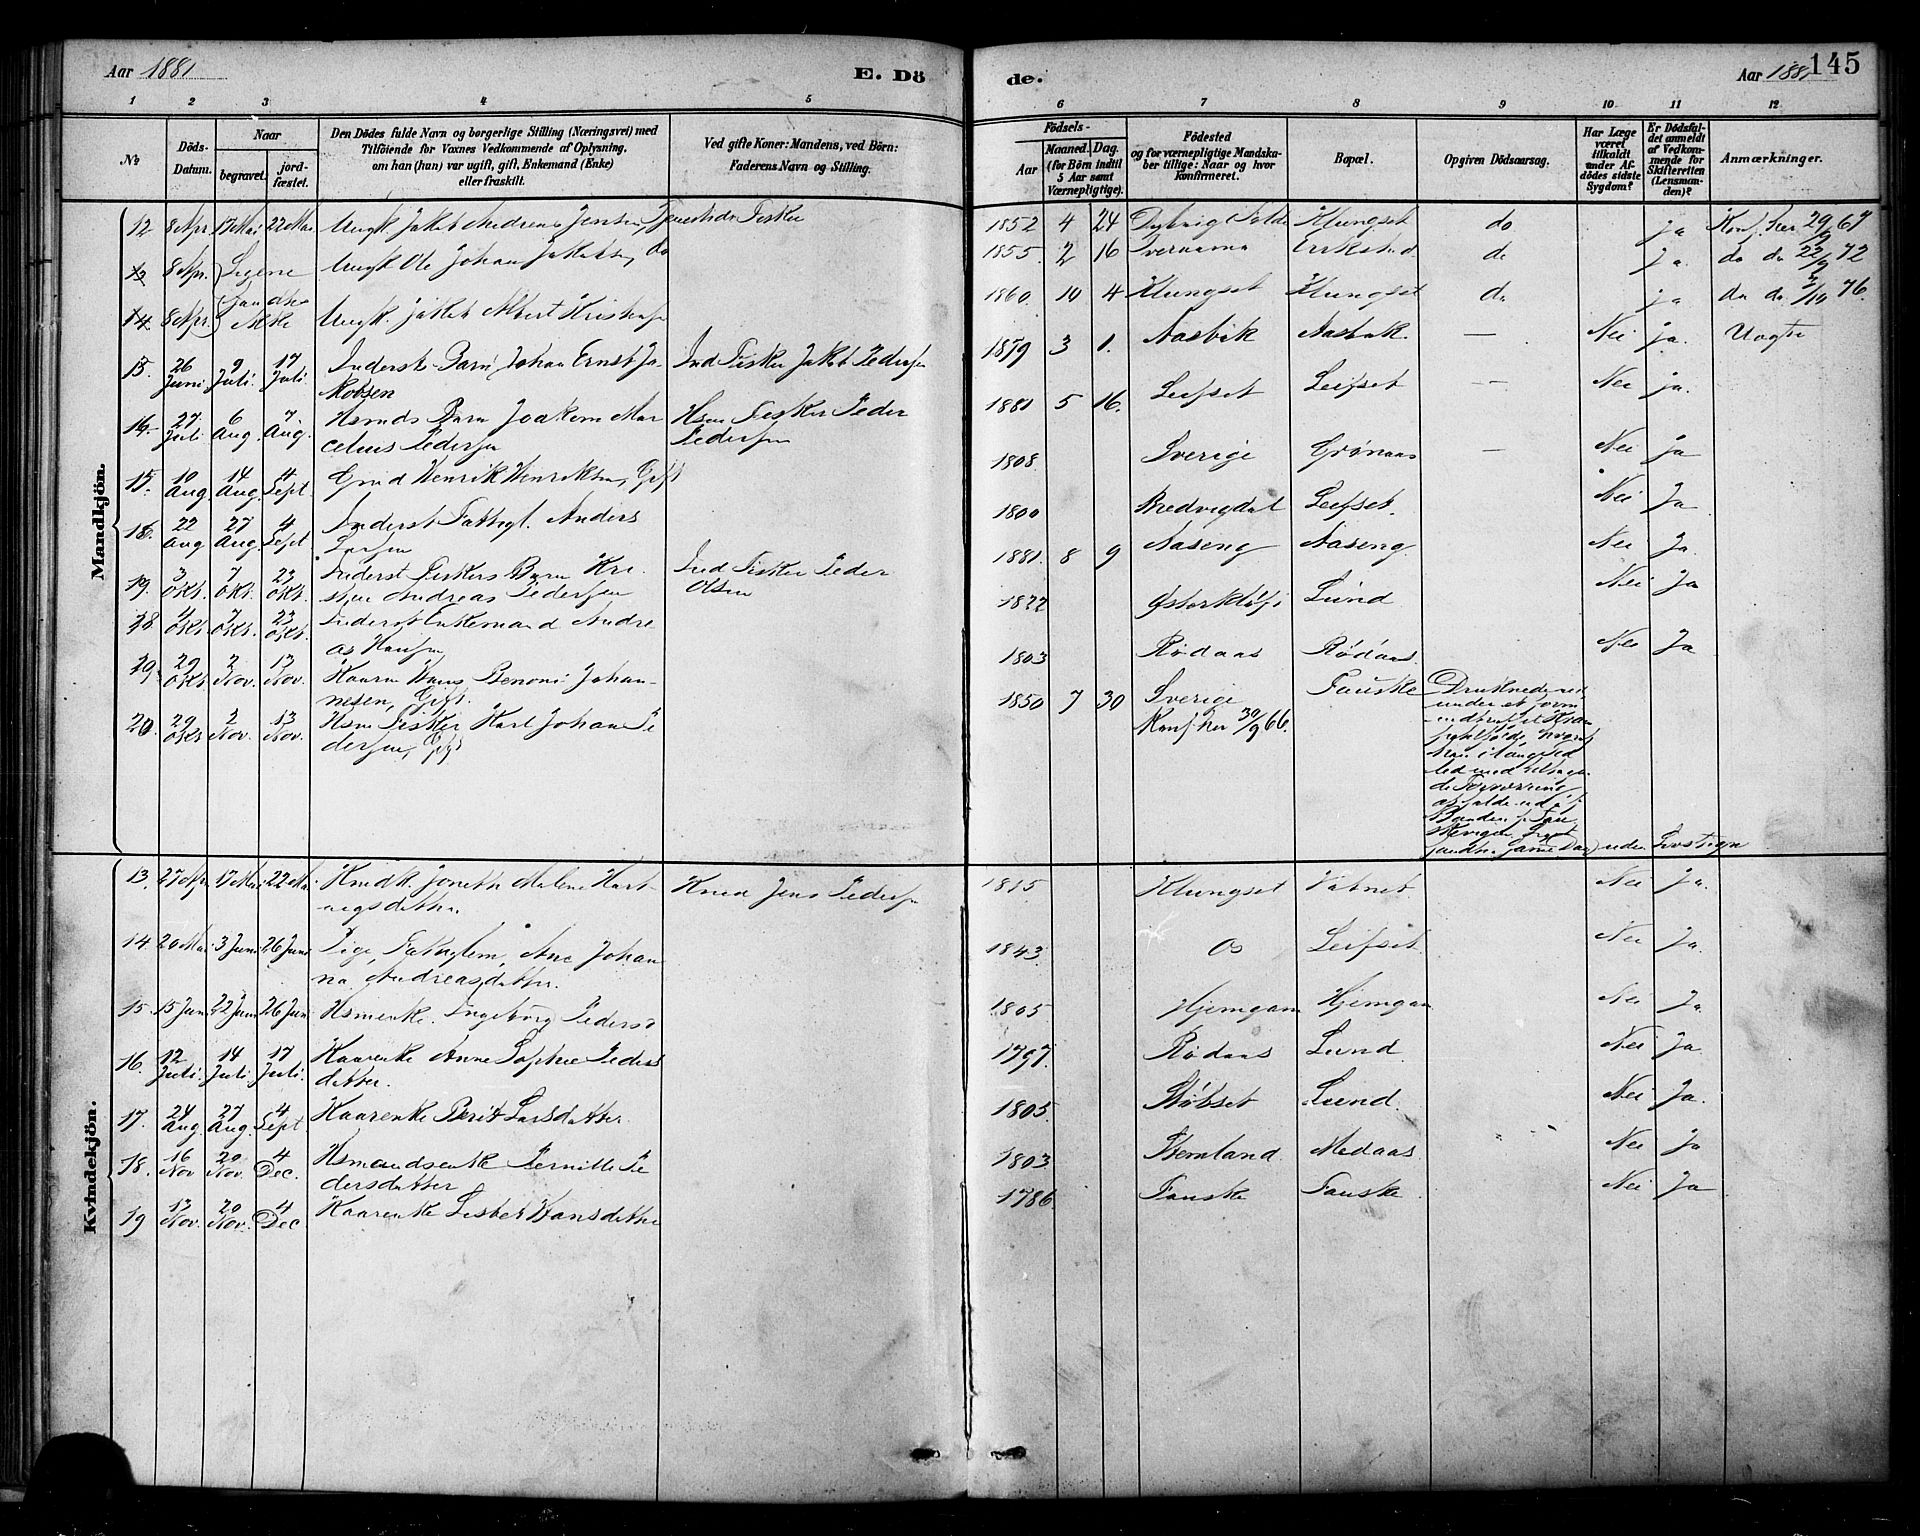 Aar 1881
E. Dö
de.
Aar 1881
145
1 2 3 4 5 6 7 8 9 10 11 12
№
Döds-
Datum.
Naar
begravet.
jord-
fæstet.
Den Dödes fulde Navn og borgerlige Stilling (Næringsvei) med
Tilföiende for Voxnes Vedkommende af Oplysning,
om han (hun) var ugift, gift, Enkemand (Enke)
eller fraskilt.
Ved gifte Koner: Mandens, ved Börn:
Faderens Navn og Stilling.
Födsels-
Aar
Maaned.
Dag.
(for Börn indtil
5 Aar samt
Værnepligtige).
Födested
og for værnepligtige Mandska-
ber tillige: Naar og hvor
konfirmeret.
Bopæl.
Opgiven Dödsaarsag.
Har Læge
været
tilkaldt
under Af-
dödes sidste
Sygdom?
Er Dödsfal-
det anmeldt
af Vedkom-
mende for
Skifteretten
(Lensman-
den)?
Anmærkninger.
Mandkjön.
12 8 Apr. 17 Mai 22 Mai Ungk Jakob Andreas Jensen, Fisker 1852 4 24 Klungset do ja Konf. her 29/9 67
13 8 Apr. Ligene Ungk Ole Johan Jakobsen do 1855. 2 16 do ja. do do 22/9 72
14. 8 Apr. ikke Ungk. Jakob Albert 1860. 10 4 Klungset Klungset do ja do do 1/10 76.
15. 26 Juni 9 Juli. 17 Juli. Inderst. Barn Johan Ernst Ja-
kobsen Ind Fisker Jakob Pedersen 1879 3 1. Aasbik Aasbak. — Nei ja. Uægte
16. 27 Juli 6 Aug 7 Aug. Hsmds Barn Joakom Mar
celius Pedersen Hsm Fisker Peder
Pedersen 1881 5 16. Leifset Leifset — Nei ja.
10 Aug 14 Aug. 4 Sept. Grd Henrik Henriksen, Gift 1808. Sverige Grønaas — Nei ja
18. 22 Aug 27 Aug. 4 Sept Inderst Fattigl. Anders
Larsen 1800 Bredvigdal Leifset. Nei Ja
19. 3 Okt. 7 Okt. 23 Okt. Inderst Fiskers Barn Kri-
stian Andreas Pedersen Ind Fisker Peder
Olsen 1881. 8 9 Aaseng Aaseng. Nei Ja.
4 Okt. 7 Okt. 23 Okt. Inderst Enkemand Andre
as Hansen 1822 Lund Nei Ja
29 Okt 2 Nov. 13 Nov. Kaarm Hans Benoni Johan-
nesen, Gift. 1803 Rødaas Rødaas. Nei Ja
20. 29 Okt 2 Nov. 13 Nov. Hsm Fisker Karl Johan Pe
dersen, Gift 1850 7 30 Sverige
Konf. her 30/9 66. Fauske Druknede ved
under et
han i
led med
Baaden
samme Dag uden Livstegn
Kvindekjön.
13. 27 Apr 17 Mai 22 Mai Jonetta Malene Hart-
vigsdatter Jens Pedersen 1815 Klungset Vatnet Nei Ja.
14. 20 Mai 3 Juni 26 Juni Pige, Fattiglem, Ane Johan
na Andreasdatter. 1843. Os Leifset Nei Ja.
15. 15 Juni 22 Juni 26 Juni Hsmenke. Ingeborg Pedersd 1805 Hjemgam Hjemgam Nei Ja.
16. 12 Juli. 14 Juli. 17 Juli. Kaarenke Anne Sophie Peders
datter. 1797. Rødaas Lund Nei Ja.
17. 24 Aug. 27 Aug. 4 Sept Kaarenke Berit Larsdatter 1805. Støbset Lund. Nei Ja.
18. 16 Nov 20 Nov. 4 Dec. Hsmandsenke Pernille Pe
dersdatter 1803 Medaas. Nei Ja
19 13 Nov. 20 Nov. 4 Dec Kaarenke Lisbet Hansdatter 1786. Fauske Fauske Nei Ja